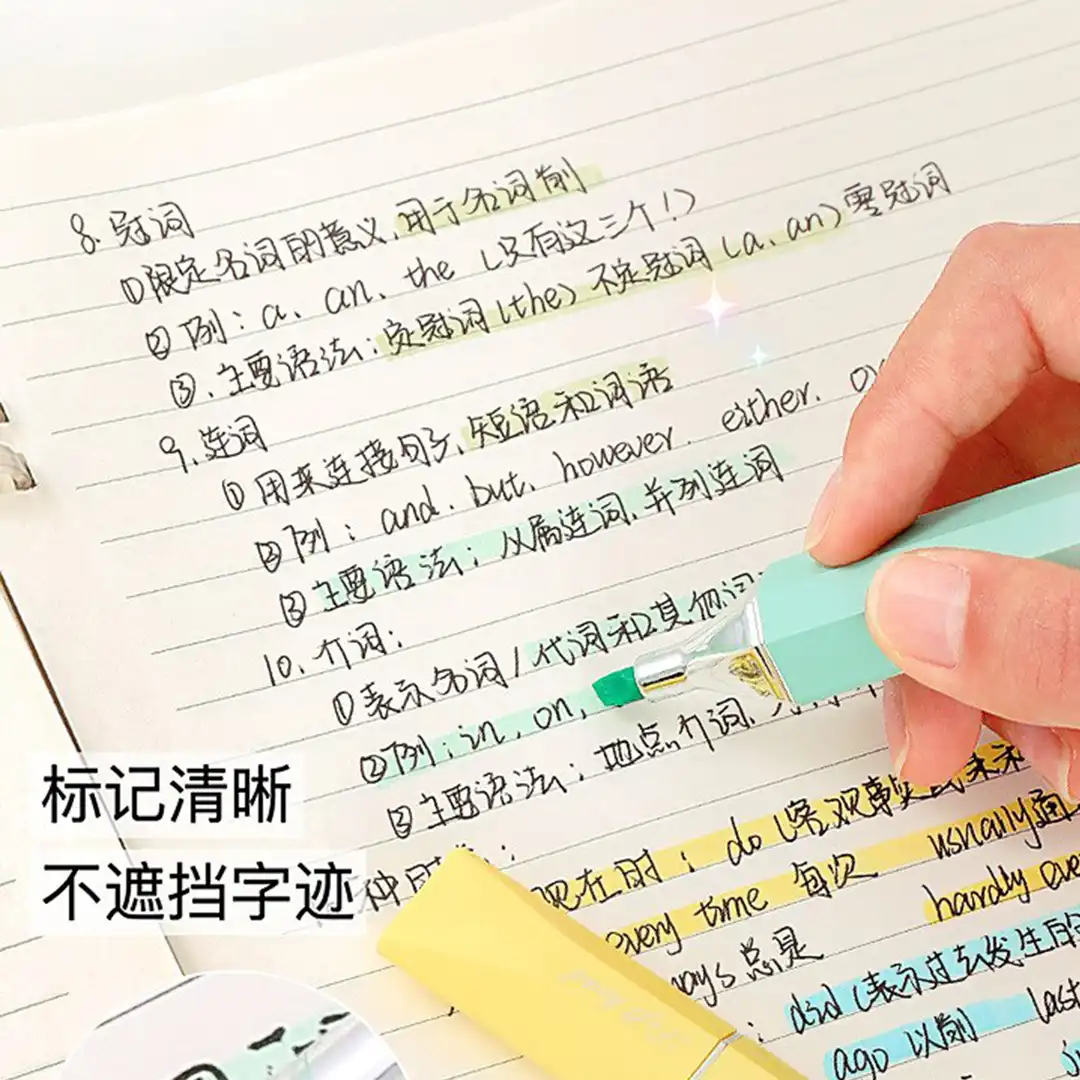 8. 冠词
①限定名词的意义,用于名词前
②例:a、an、the(只有这三个!)
③.主要语法:定冠词(the)不定冠词(a、an)零冠词
9.连词
①用来连接句子、短语和词语
②例:and、but、however、either、
③主要语法:从属连词、并列连词
10.介词:
①表示名词/代词和其他词
②例:in,on,
③主要语法:地点介词、
现在时:do(客观事实或未来
every time 每次 usually
总是 hardly
did(表示过去发生的
ago 以前 last
标记清晰
不遮挡字迹